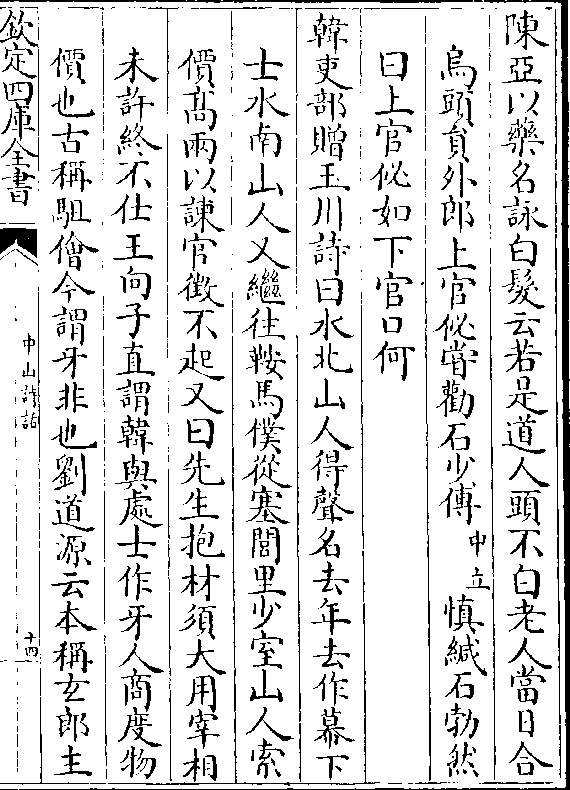 陳亞以藥名詠白髮云若是道人頭不白老人當日合
烏頭貟外郎上官佖嘗勸石少傅中立慎緘石勃然
曰上官佖如下官口何
韓吏部贈玉川詩曰水北山人得聲名去年去作幕下
士水南山人又繼徃鞍馬僕從塞閭里少室山人索
價髙兩以諫官徴不起又曰先生抱材須大用宰相
未許終不仕王向子直謂韓與處士作牙人商度物
價也古稱駔儈今謂牙非也劉道源云本稱玄郎主
欽定四庫全書
中山詩話
十四